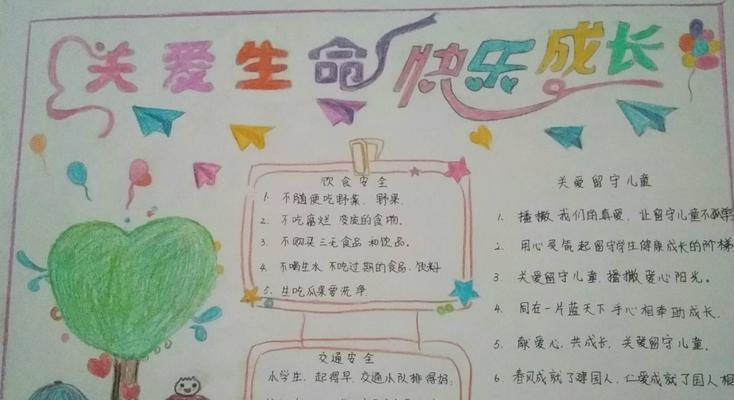 关爱生命 快乐成长
饮食安全
1. 不随便吃野菜、野果.
2. 不吃腐烂 变质的食物.
3. 不购买三无食品和饮品。
4. 不喝生水.不吃过期的食品、饮料
5. 生吃瓜果要洗净
交通安全
小学生，起得早.交通小队排得好;
关爱留守儿童
1. 播撒我们的真爱，让留守儿童不孤单
2. 用心灵筑起留守学生健康成长的阶梯
3. 关爱留守儿童.播撒爱心阳光。
4. 同在一片蓝天下 手心相牵助成长.
5. 献爱心.共成长.关爱留守儿童.
6. 春风成就了建国人，仁爱成就了国人根